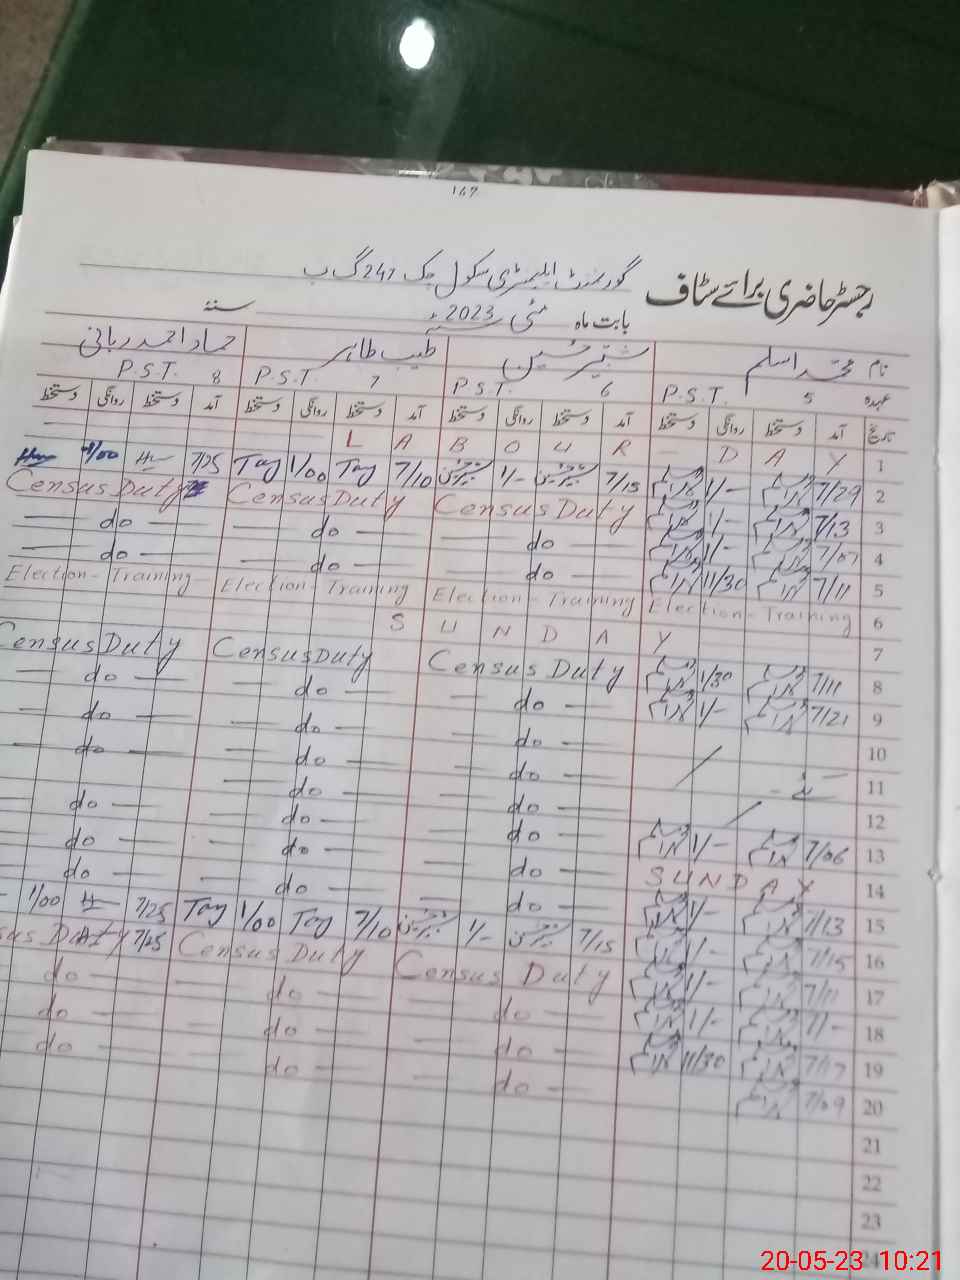 167
رجسٹر حاضری برائے سٹاف گورنمنٹ ایلیمنٹری سکول چک 247 گ ب
بابت ماہ مئی 2023ء سنہ
نام محمد اسلم شبیر حسین طیب طاہر حماد احمد ربانی
عہدہ 5 P.S.T. 6 P.S.T. 7 P.S.T. 8 P.S.T.
تاریخ آمد دستخط روانگی دستخط آمد دستخط روانگی دستخط آمد دستخط روانگی دستخط آمد دستخط روانگی دستخط
1 LABOUR - DAY
2 7/29 1/- 7/15 1/- 7/10 Tay 1/00 Tay 7/25 1/00
3 7/13 1/- Census Duty Census Duty Census Duty
4 7/07 1/- do do do
5 7/11 11/30 do do do
6 Election - Training Election - Training Election - Training Election - Training
7 SUNDAY
8 7/11 1/30 Census Duty Census Duty Census Duty
9 7/21 1/- do do do
10 do do do
11 do do do
12 do do do
13 7/06 1/- do do do
14 SUNDAY do do do
15 7/13 1/- do do
16 7/15 1/- 7/15 1/- 7/10 Tay 1/00 Tay 7/25 1/00
17 7/11 1/- Census Duty Census Duty 7/25
18 7/- 1/- do do do
19 7/17 11/30 do do do
20 7/09 do do do
21
22
23
24
20-05-23 10:21